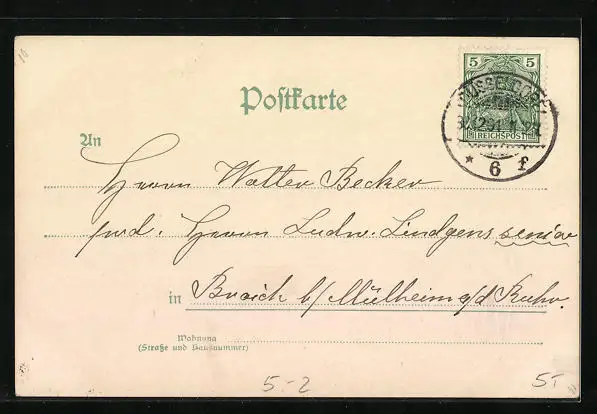 10
5 5
REICHSPOST
DÜSSELDORF
* 6 f
Postkarte
An
Herrn Walter Becker
Herrn Ludw. Lindgens senior
in Broich b/Mülheim a/d Ruhr.
Wohnung
(Straße und Hausnummer)
5.-2
5.-